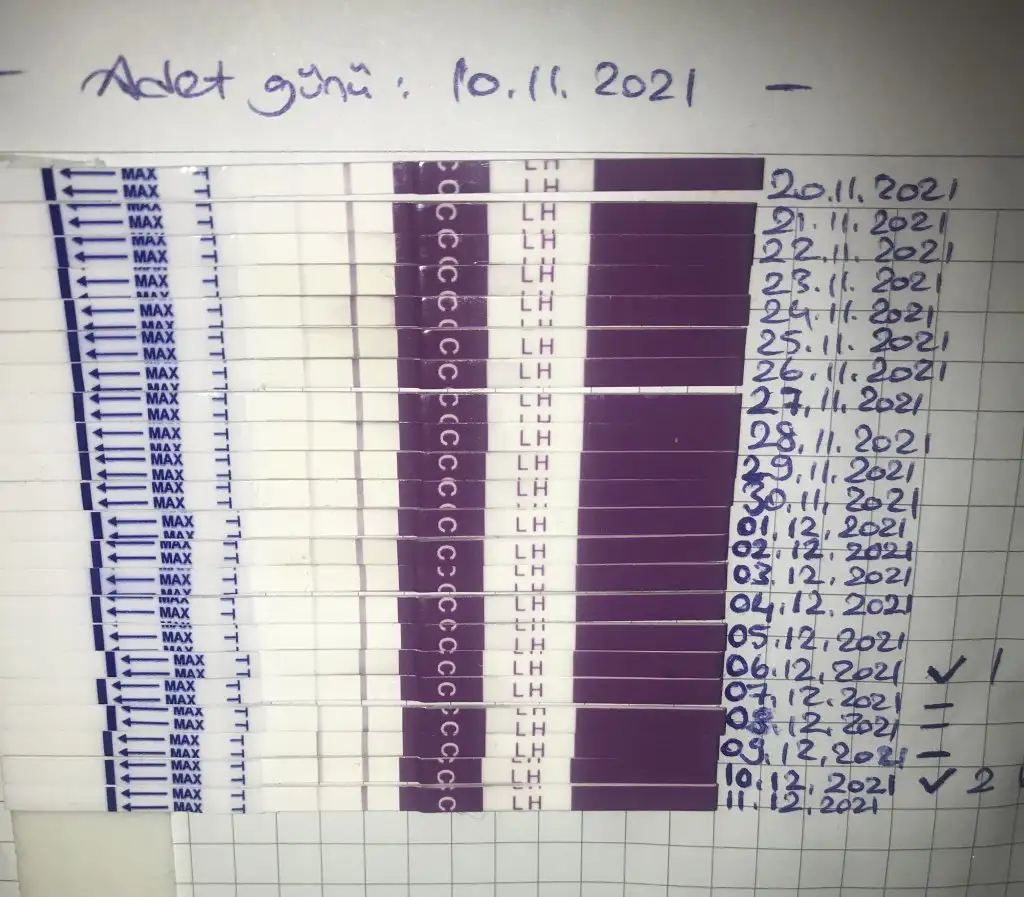 - Adet günü : 10.11.2021 -
MAX T C LH
MAX T C LH 20.11.2021
MAX T C LH 21.11.2021
MAX T C LH 22.11.2021
MAX T C LH 23.11.2021
MAX T C LH 24.11.2021
MAX T C LH 25.11.2021
MAX T C LH 26.11.2021
MAX T C LH 27.11.2021
MAX T C LH 28.11.2021
MAX T C LH 29.11.2021
MAX T C LH 30.11.2021
MAX T C LH 01.12.2021
MAX T C LH 02.12.2021
MAX T C LH 03.12.2021
MAX T C LH 04.12.2021
MAX T C LH 05.12.2021
MAX T C LH 06.12.2021 ✓ 1
MAX T C LH 07.12.2021 -
MAX T C LH 08.12.2021 -
MAX T C LH 09.12.2021 -
MAX T C LH 10.12.2021 ✓ 2
MAX T C LH 11.12.2021